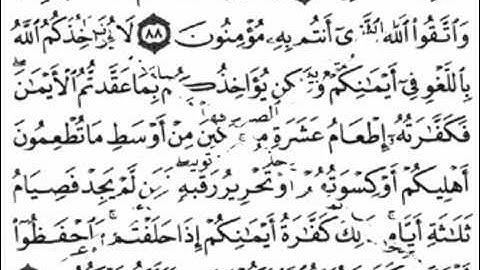 وَٱتَّقُوا۟ ٱللَّهَ أَنتُم بِهِۦ مُؤْمِنُونَ ٨٨ لَا يُؤَاخِذُكُمُ ٱللَّهُ
بِٱللَّغْوِ فِىٓ أَيْمَٰنِكُمْ يُؤَاخِذُكُم بِمَا عَقَّدتُّمُ ٱلْأَيْمَٰنَ
فَكَفَّٰرَتُهُۥٓ إِطْعَامُ عَشَرَةِ مِنْ أَوْسَطِ مَا تُطْعِمُونَ
أَهْلِيكُمْ أَوْ كِسْوَتُهُمْ أَوْ تَحْرِيرُ رَقَبَةٍ لَّمْ يَجِدْ فَصِيَامُ
ثَلَٰثَةِ أَيَّامٍ كَفَّٰرَةُ أَيْمَٰنِكُمْ إِذَا حَلَفْتُمْ ٱحْفَظُوٓا۟